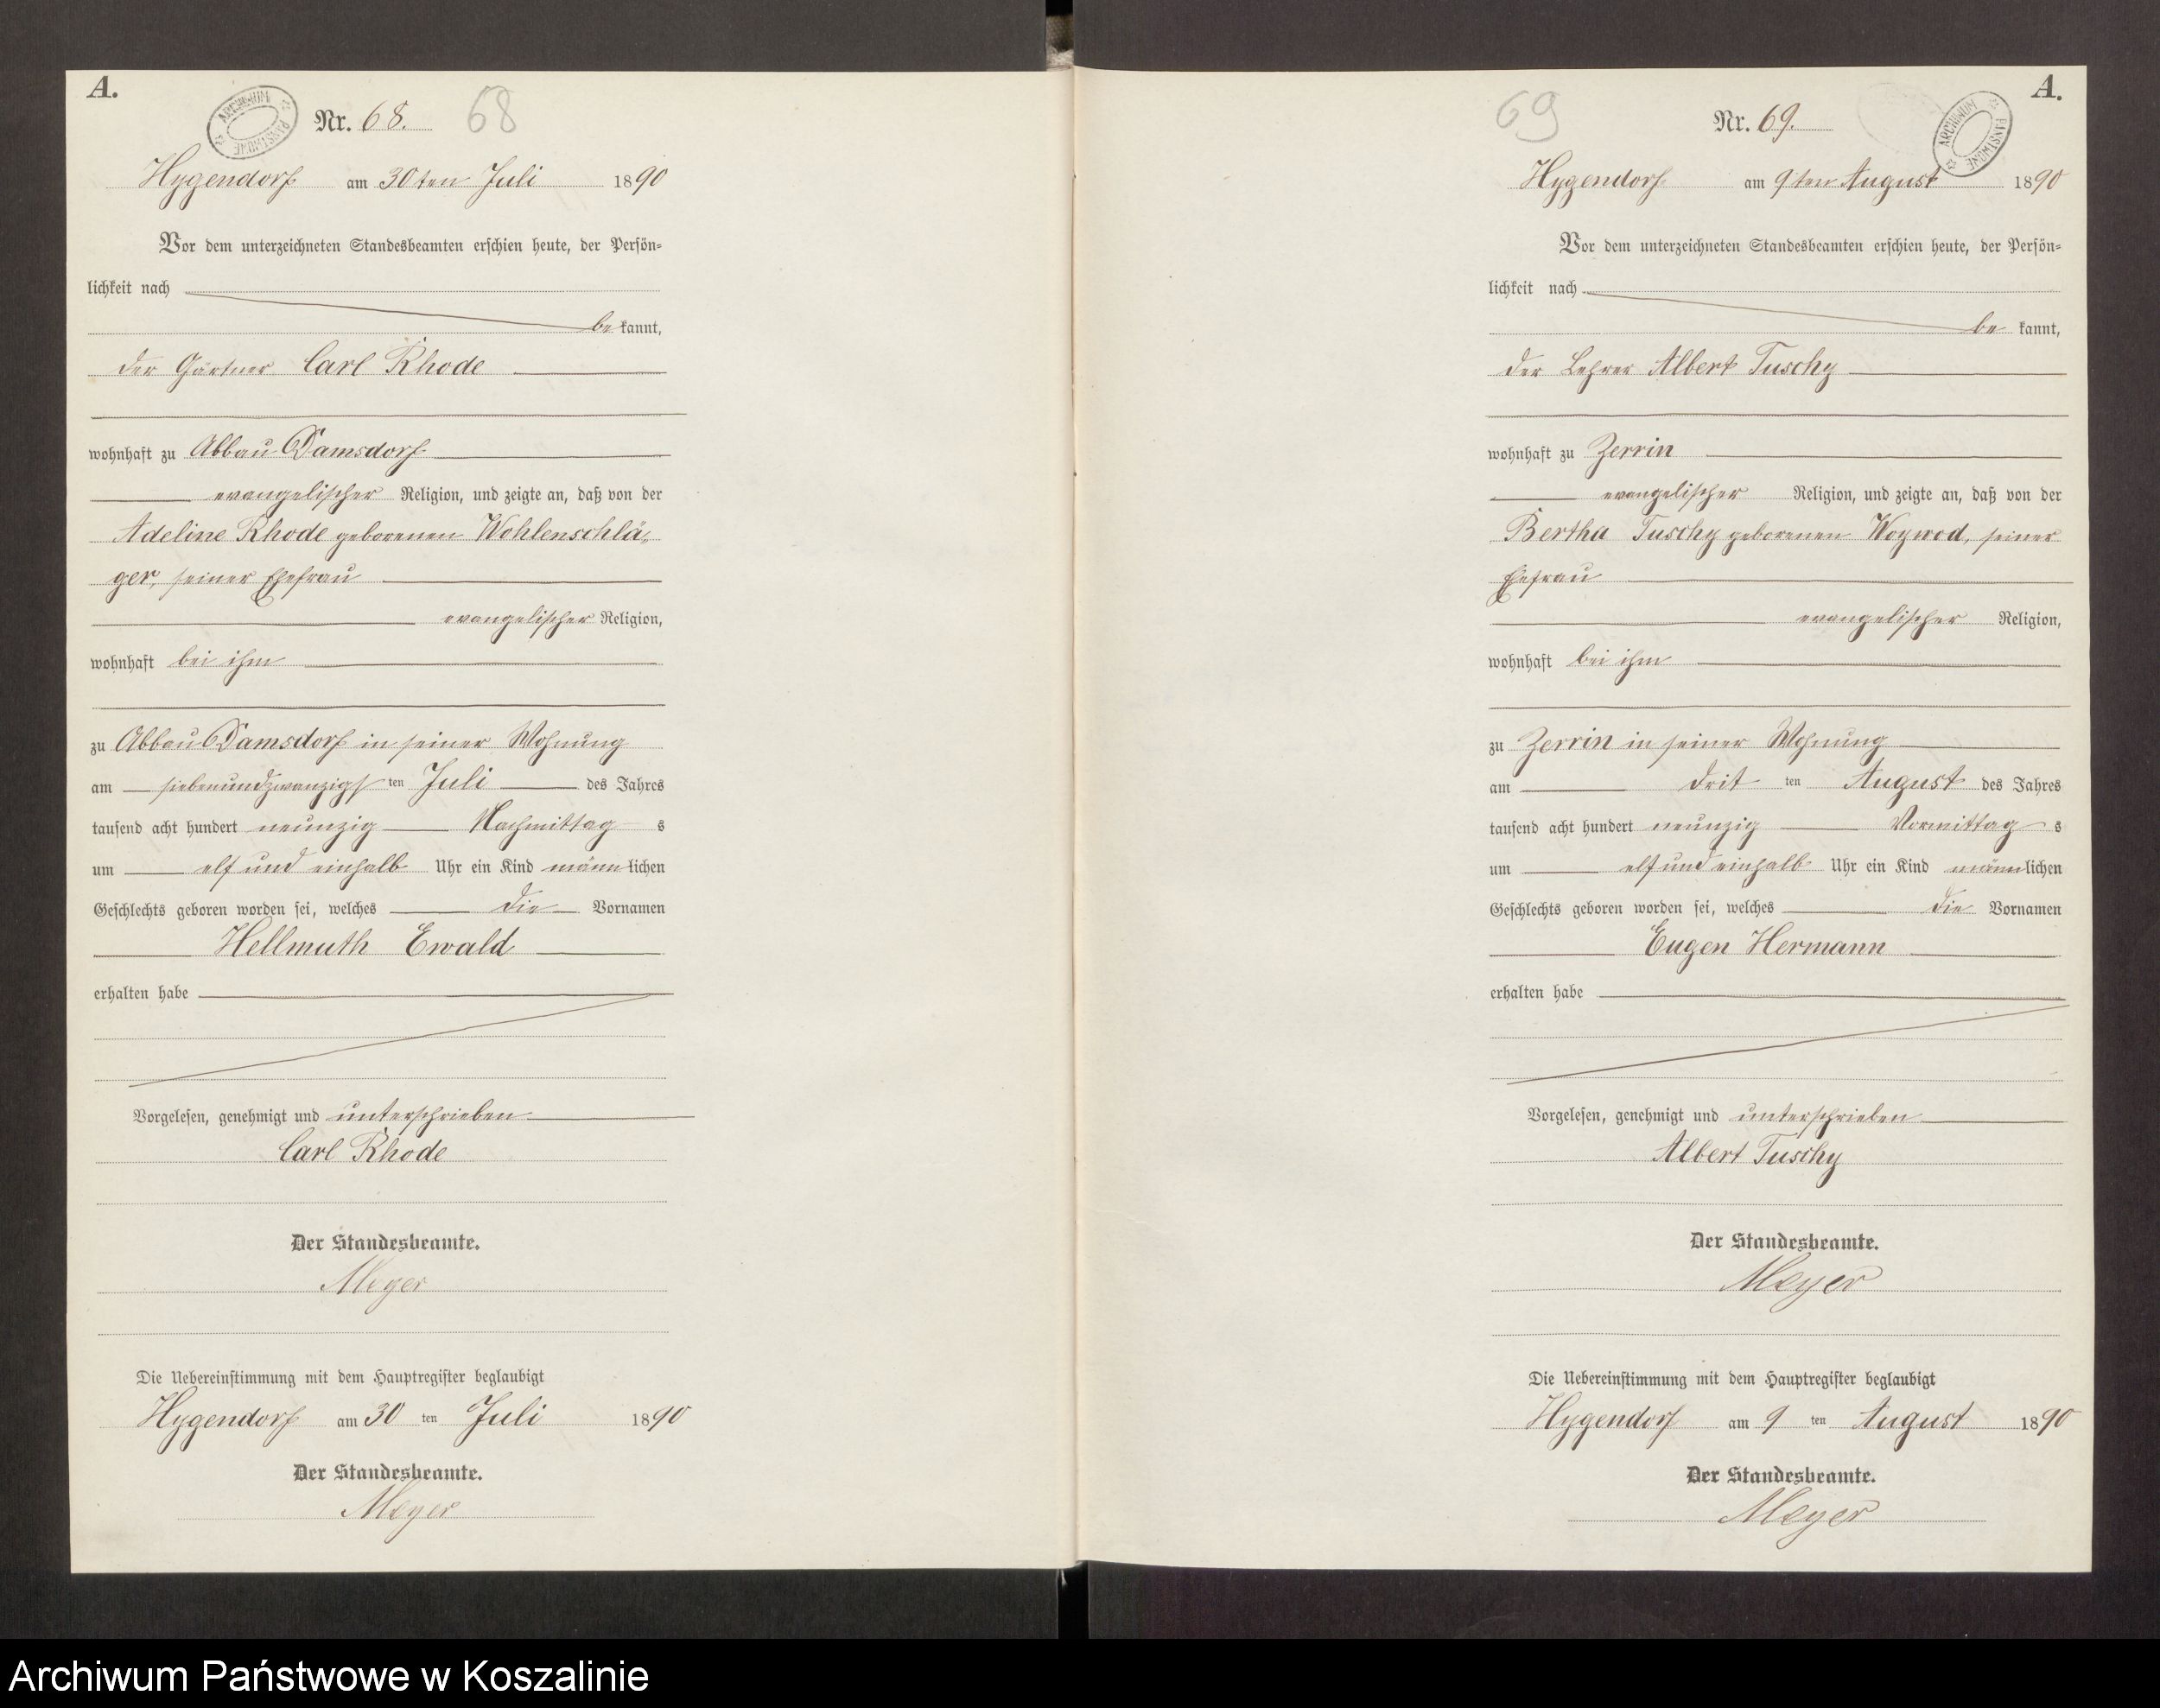 A.
ARCHIWUM PAŃSTWOWE
Nr. 68. 68
Hygendorf am 30ten Juli 1890
Vor dem unterzeichneten Standesbeamten erschien heute, der Persön-
lichkeit nach
be kannt,
der Gärtner Carl Rhode
wohnhaft zu Abbau Damsdorf
evangelischer Religion, und zeigte an, daß von der
Adeline Rhode geborenen Wohlenschlä-
ger, seiner Ehefrau
evangelischer Religion,
wohnhaft bei ihm
zu Abbau Damsdorf in seiner Wohnung
am siebenundzwanzigs ten Juli des Jahres
tausend acht hundert neunzig Nachmittag s
um elf und einhalb Uhr ein Kind männ lichen
Geschlechts geboren worden sei, welches die Vornamen
Hellmuth Ewald
erhalten habe
Vorgelesen, genehmigt und unterschrieben
Carl Rhode
Der Standesbeamte.
Meyer
Die Uebereinstimmung mit dem Hauptregister beglaubigt
Hygendorf am 30 ten Juli 1890
Der Standesbeamte.
Meyer
A.
ARCHIWUM PAŃSTWOWE
69 Nr. 69.
Hygendorf am 9ten August 1890
Vor dem unterzeichneten Standesbeamten erschien heute, der Persön-
lichkeit nach
be kannt,
der Lehrer Albert Tuschy
wohnhaft zu Zerrin
evangelischer Religion, und zeigte an, daß von der
Bertha Tuschy geborenen Woywod, seiner
Ehefrau
evangelischer Religion,
wohnhaft bei ihm
zu Zerrin in seiner Wohnung
am drit ten August des Jahres
tausend acht hundert neunzig Vormittag s
um elf und einhalb Uhr ein Kind männ lichen
Geschlechts geboren worden sei, welches die Vornamen
Eugen Hermann
erhalten habe
Vorgelesen, genehmigt und unterschrieben
Albert Tuschy
Der Standesbeamte.
Meyer
Die Uebereinstimmung mit dem Hauptregister beglaubigt
Hygendorf am 9 ten August 1890
Der Standesbeamte.
Meyer
Archiwum Państwowe w Koszalinie